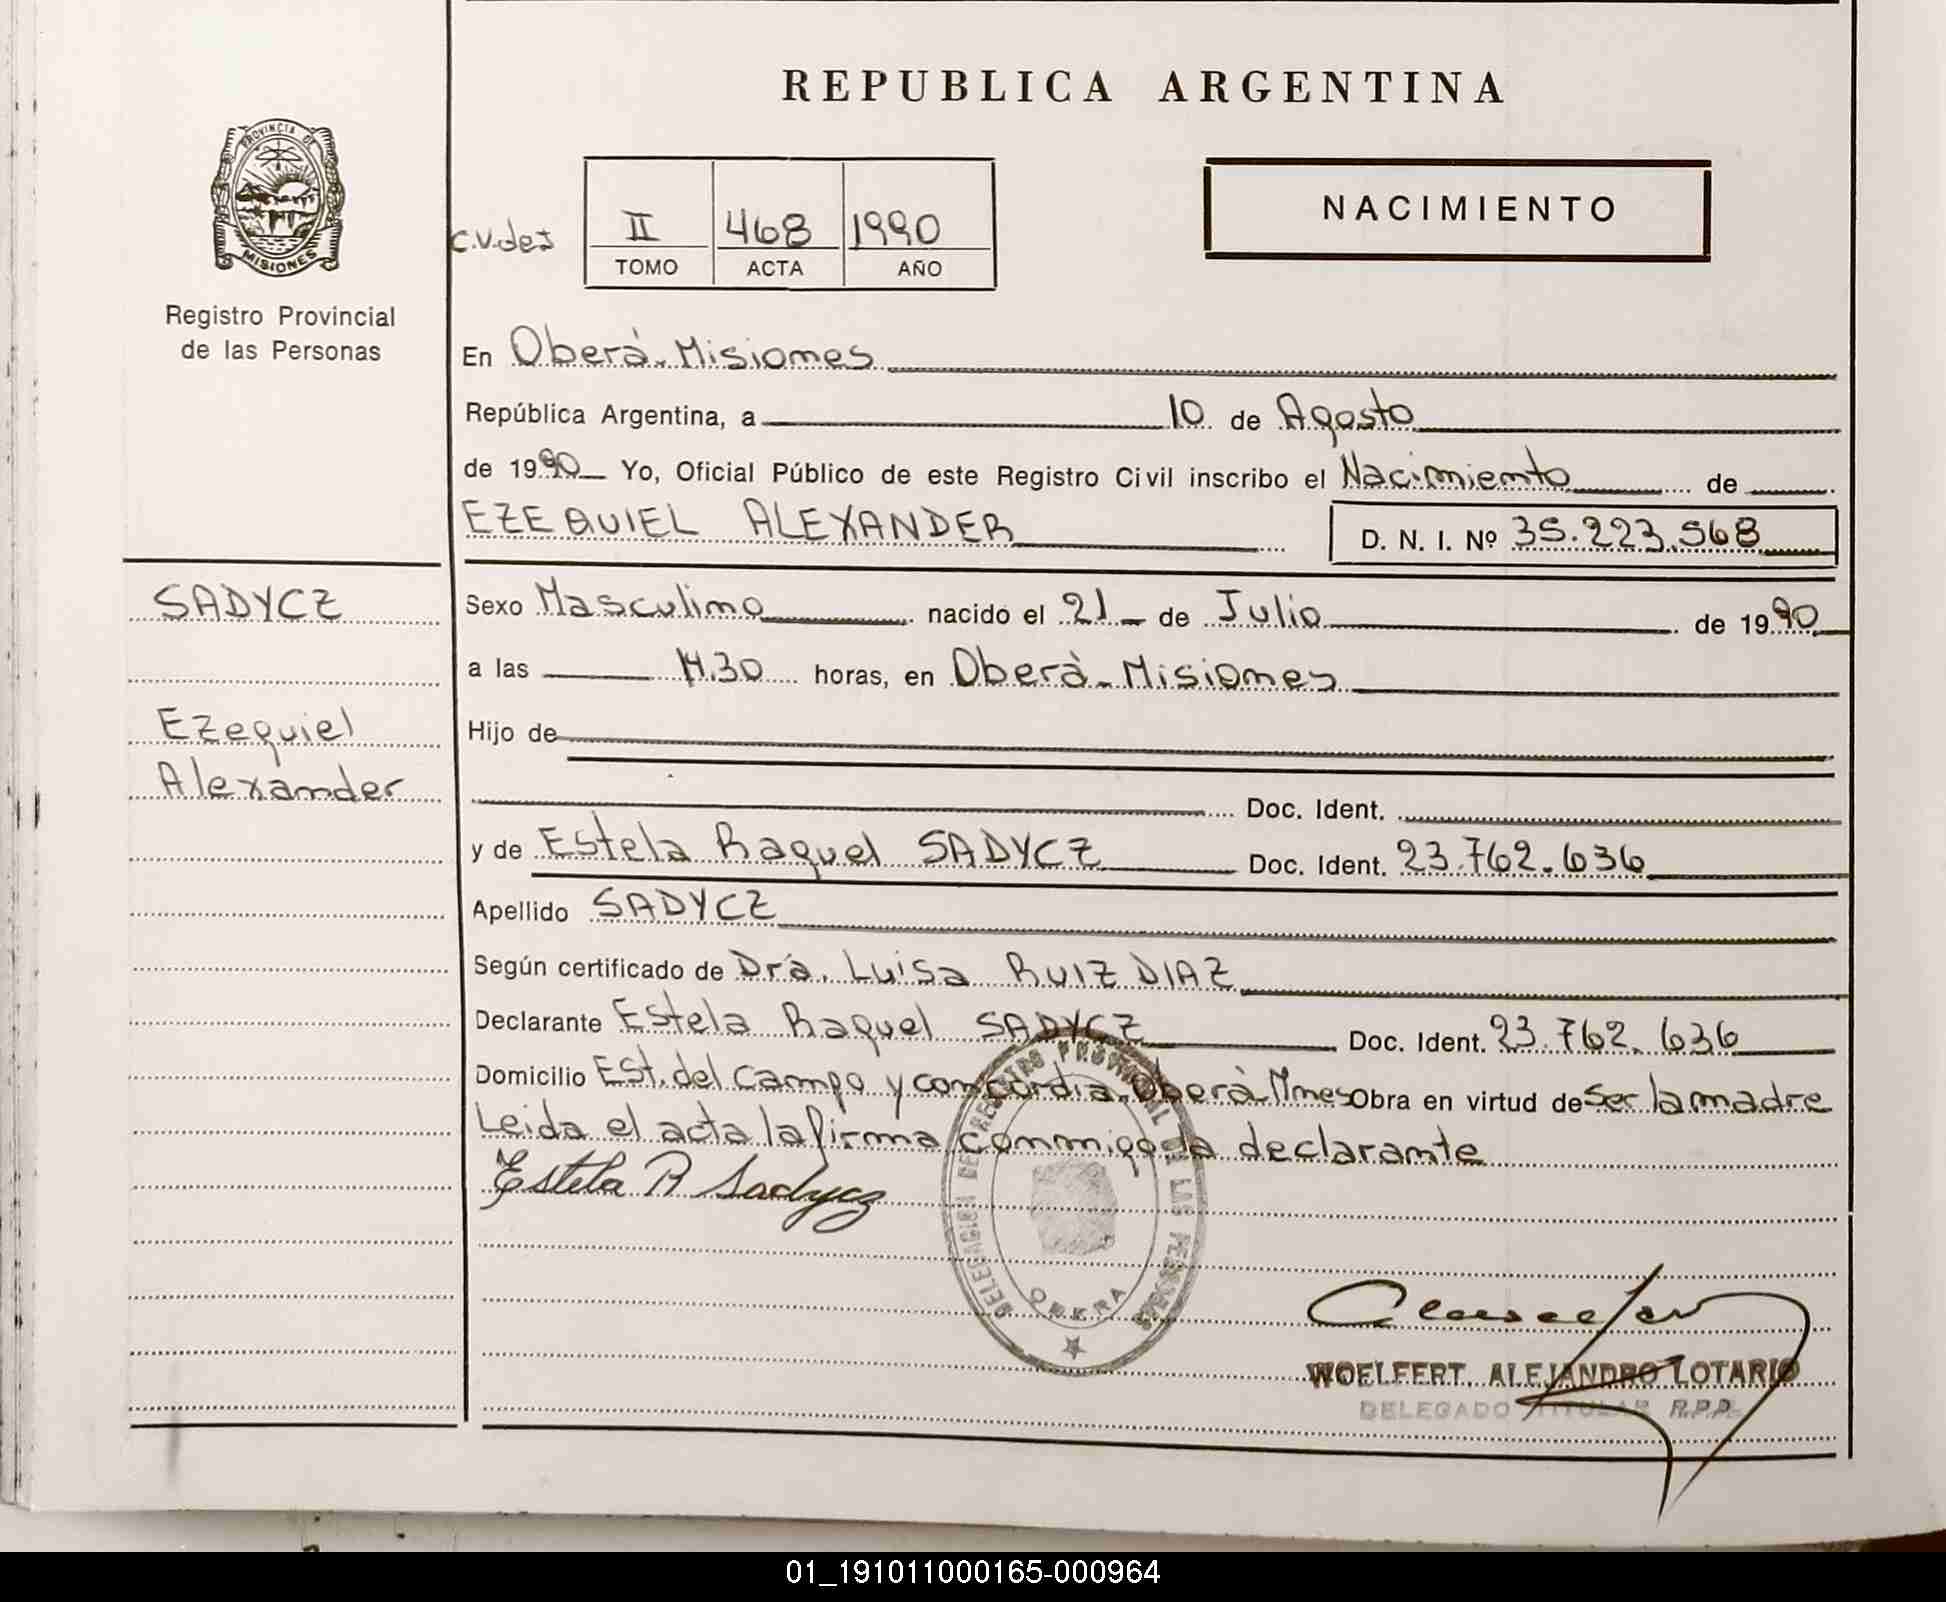 REPUBLICA ARGENTINA
PROVINCIA DE MISIONES
Registro Provincial
de las Personas
C.V.des
II 468 1990
TOMO ACTA AÑO
NACIMIENTO
En Oberà-Misiones
República Argentina, a 10 de Agosto
de 1990 Yo, Oficial Público de este Registro Civil inscribo el Nacimiento de
EZEQUIEL ALEXANDER D. N. I. Nº 35.223.568
SADYCZ
Ezequiel
Alexander
Sexo Masculino nacido el 21 de Julio de 1990
a las horas, en Oberà-Misiones
Hijo de
Doc. Ident.
y de Estela Raquel SADYCZ Doc. Ident. 23.762.636
Apellido SADYCZ
Según certificado de Dra. Luisa RUIZ DIAZ
Declarante Estela Raquel SADYCZ Doc. Ident. 23.762.636
Domicilio Est. del Campo y concordia. Oberà-Mnes Obra en virtud de Ser la madre
Leida el acta la firma conmigo la declarante
Estela R Sadycz
DELEGACION DEL REGISTRO PROVINCIAL DE LAS PERSONAS
OBERA
WOELFERT, ALEJANDRO LOTARIO
DELEGADO TITULAR R.P.P.
01_191011000165-000964